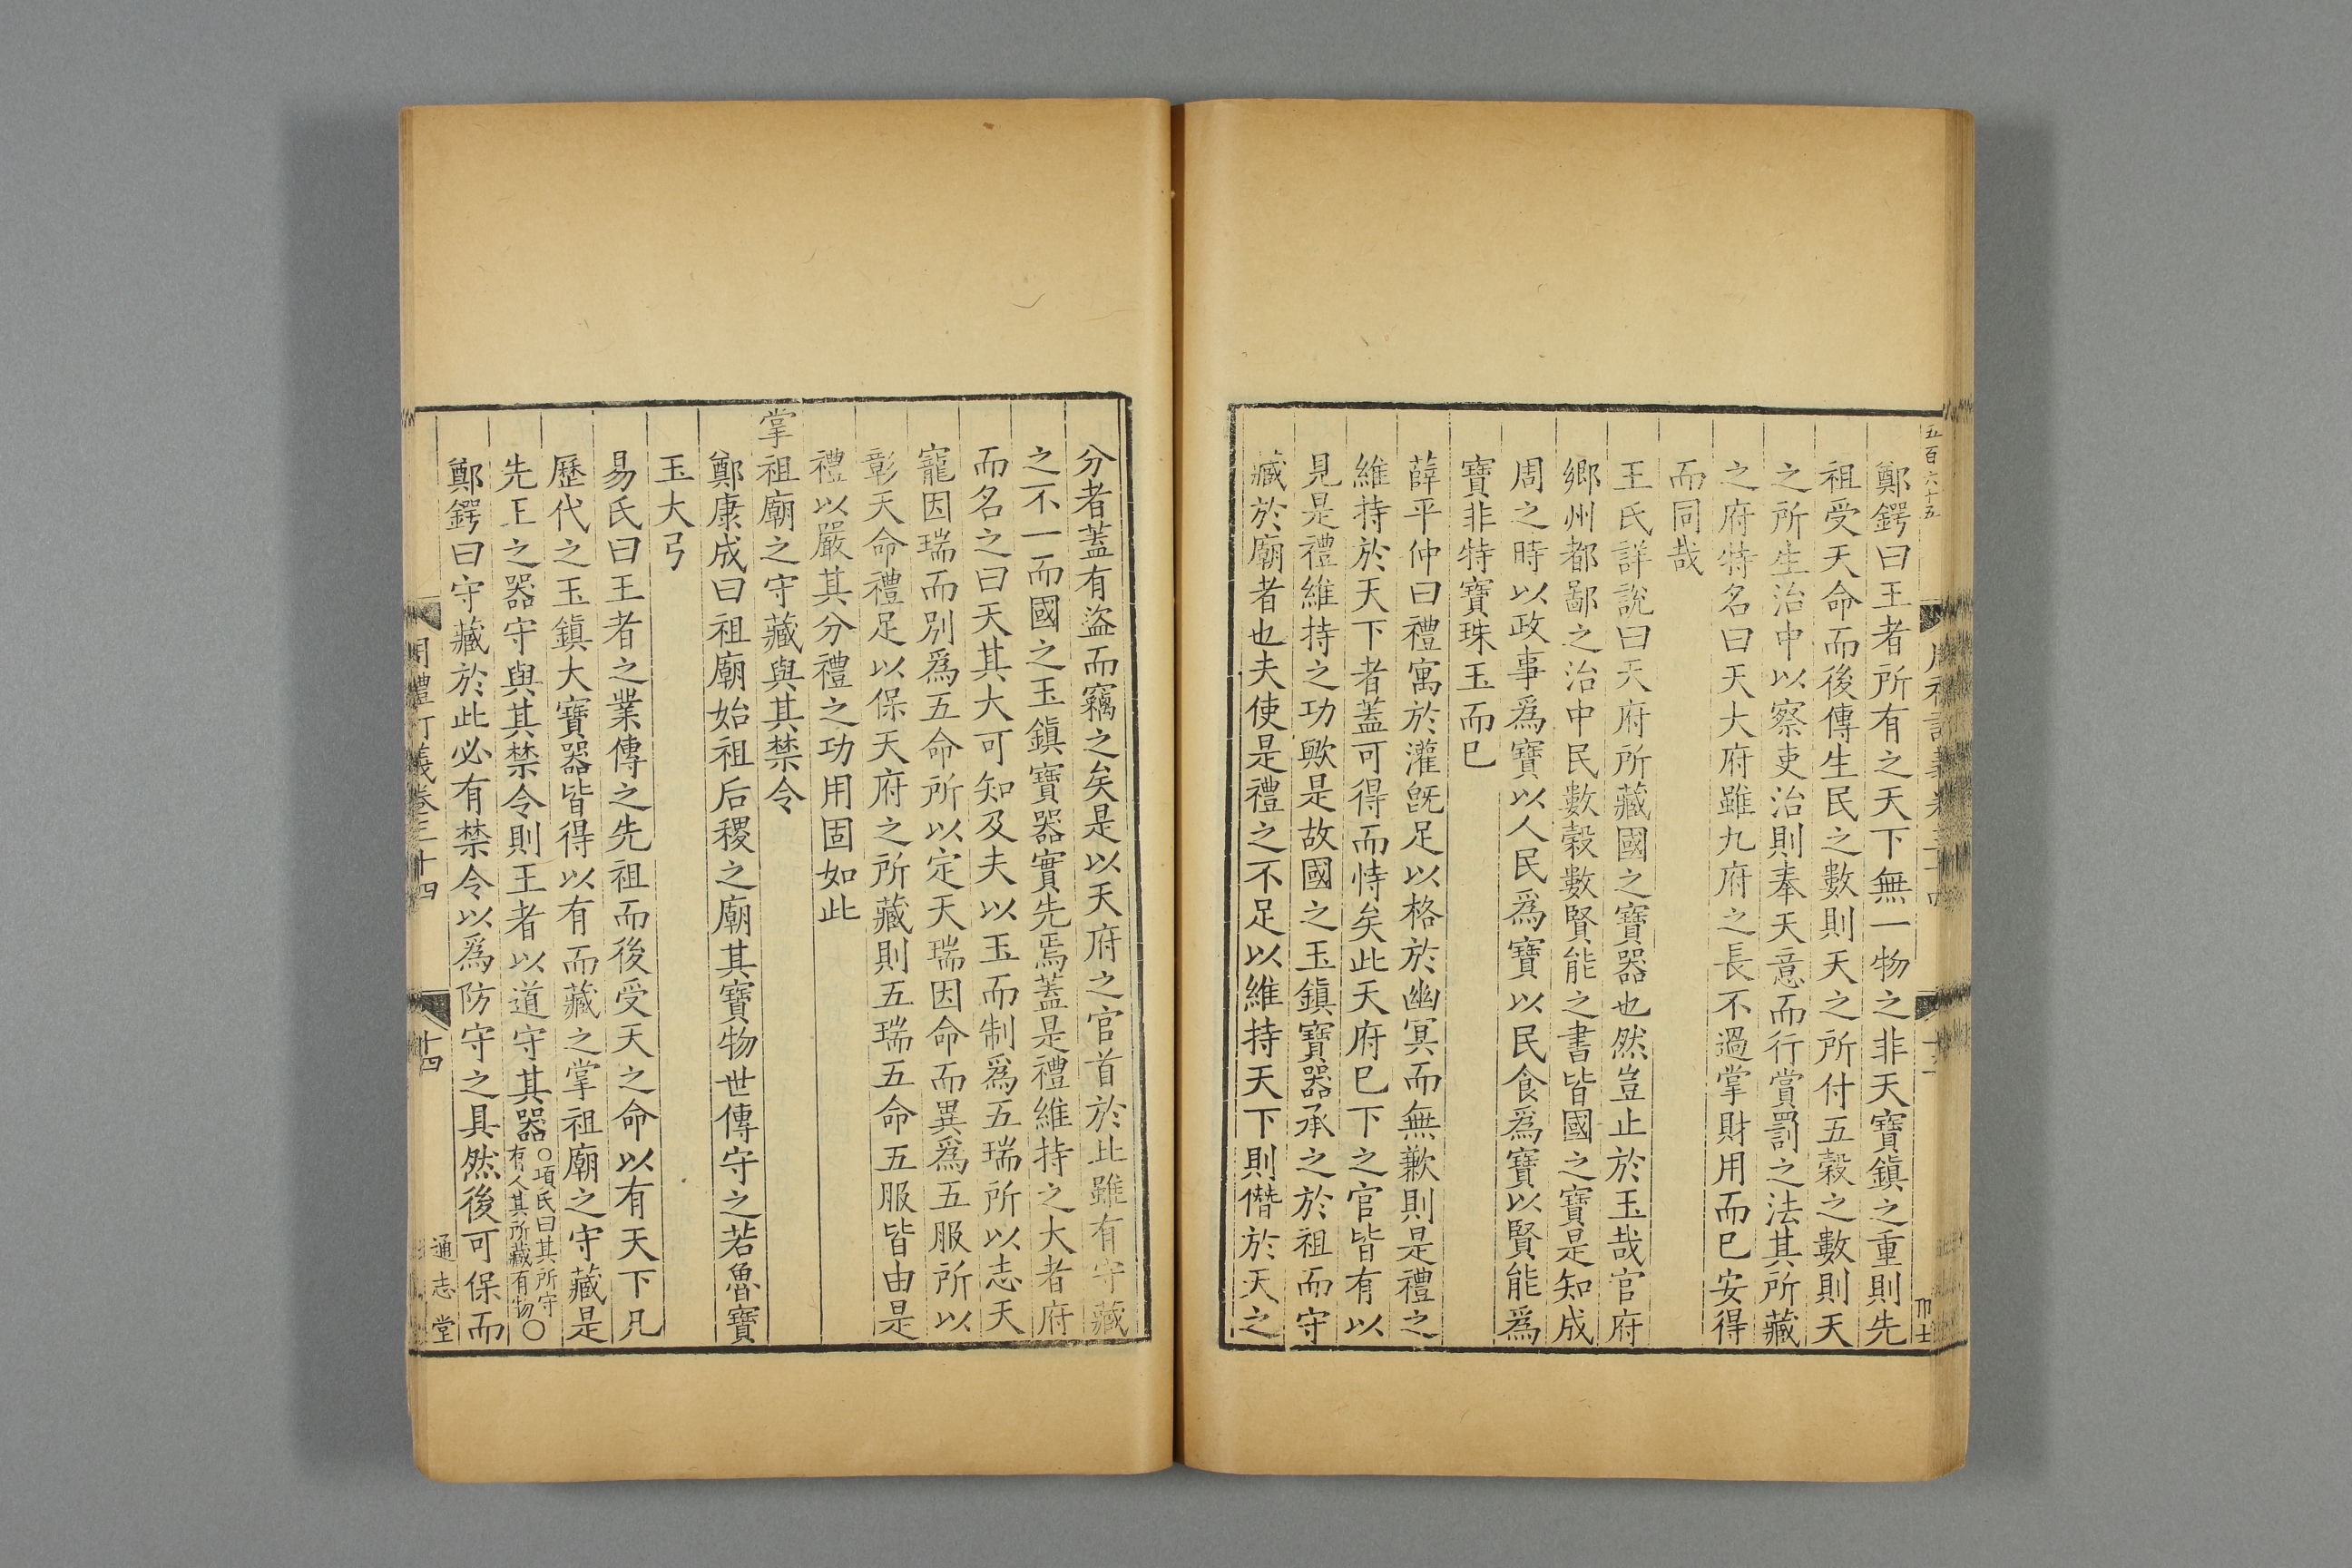 五百六十五
鄭鍔曰王者所有之天下無一物之非天寶鎮之重則先
祖受天命而後傳生民之數則天之所付五穀之數則天
之所生治中以察吏治則奉天意而行賞罰之法其所藏
之府特名曰天大府雖九府之長不過掌財用而已安得
而同哉
王氏詳說曰天府所藏國之寶器也然豈止於玉哉官府
鄉州都鄙之治中民數穀數賢能之書皆國之寶是知成
周之時以政事爲寶以人民爲寶以民食爲寶以賢能爲
寶非特寶珠玉而已
薛平仲曰禮寓於灌旣足以格於幽冥而無歉則是禮之
維持於天下者蓋可得而恃矣此天府已下之官皆有以
見是禮維持之功歟是故國之玉鎮寶器承之於祖而守
藏於廟者也夫使是禮之不足以維持天下則僭於天之
分者蓋有盜而竊之矣是以天府之官首於此雖有守藏
之不一而國之玉鎮寶器實先焉蓋是禮維持之大者府
而名之曰天其大可知及夫以玉而制爲五瑞所以志天
寵因瑞而別爲五命所以定天瑞因命而異爲五服所以
彰天命禮足以保天府之所藏則五瑞五命五服皆由是
禮以嚴其分禮之功用固如此
掌祖廟之守藏與其禁令
鄭康成曰祖廟始祖后稷之廟其寶物世傳守之若魯寶
玉大弓
易氏曰王者之業傳之先祖而後受天之命以有天下凡
歷代之玉鎮大寶器皆得以有而藏之掌祖廟之守藏是
先王之器守與其禁令則王者以道守其器○項氏曰其所守
有人其所藏有物○
鄭鍔曰守藏於此必有禁令以爲防守之具然後可保而
周禮訂義卷三十四
十四
通志堂